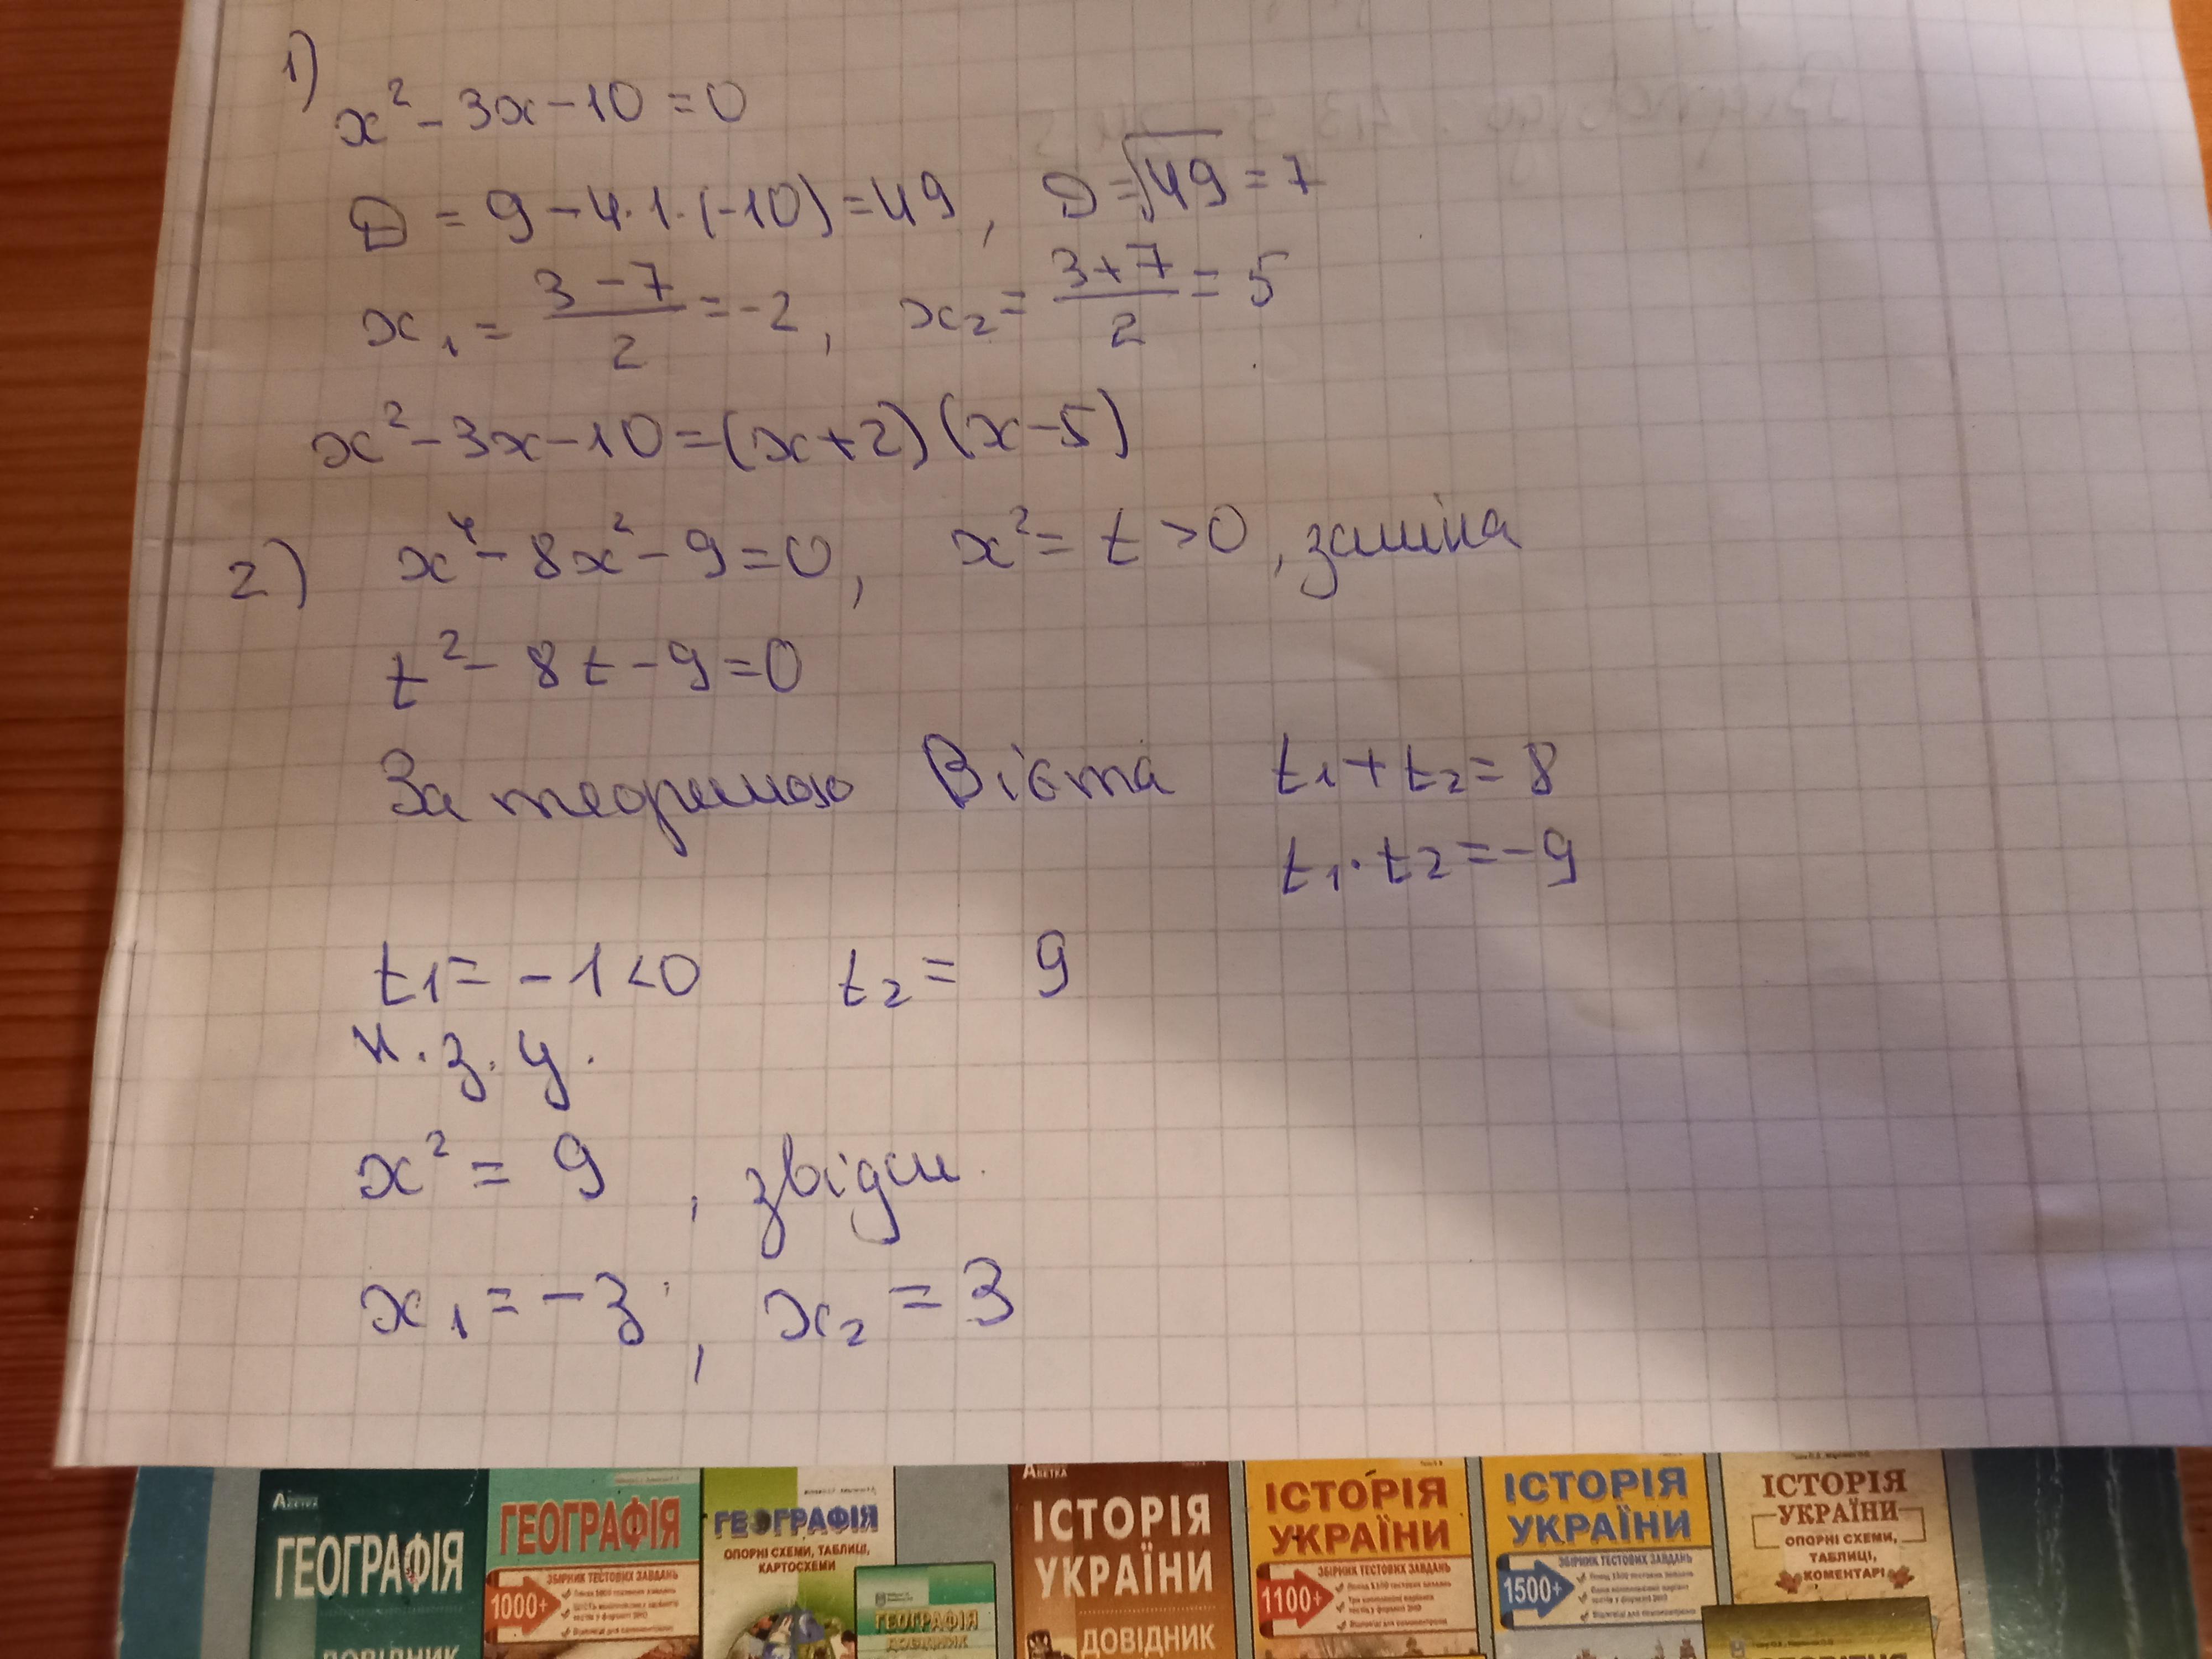 1)
x² - 3x - 10 = 0
D = 9 - 4·1·(-10) = 49, D = √49 = 7
x₁ = (3 - 7)/2 = -2, x₂ = (3 + 7)/2 = 5
x² - 3x - 10 = (x + 2)(x - 5)
2) x⁴ - 8x² - 9 = 0, x² = t > 0, заміна
t² - 8t - 9 = 0
За теоремою Вієта t₁ + t₂ = 8
t₁ · t₂ = -9
t₁ = -1 < 0 t₂ = 9
н.з.у.
x² = 9, звідси
x₁ = -3, x₂ = 3
АБЕТКА
ГЕОГРАФІЯ
ДОВІДНИК
ГЕОГРАФІЯ
ЗБІРНИК ТЕСТОВИХ ЗАВДАНЬ
1000+
ГЕОГРАФІЯ
ОПОРНІ СХЕМИ, ТАБЛИЦІ,
КАРТОСХЕМИ
ГЕОГРАФІЯ
ДОВІДНИК
АБЕТКА
ІСТОРІЯ
УКРАЇНИ
ДОВІДНИК
ІСТОРІЯ
УКРАЇНИ
ЗБІРНИК ТЕСТОВИХ ЗАВДАНЬ
1100+
ІСТОРІЯ
УКРАЇНИ
ЗБІРНИК ТЕСТОВИХ ЗАВДАНЬ
1500+
ІСТОРІЯ
УКРАЇНИ
ОПОРНІ СХЕМИ,
ТАБЛИЦІ,
КОМЕНТАРІ